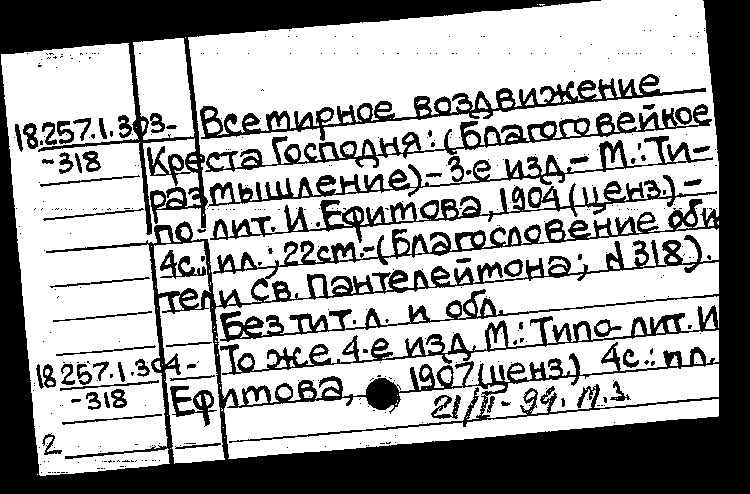 18.257.1.303- Всемирное воздвижение
-318 Креста Господня: (Благоговейное
размышление).- 3-е изд.- М.: Ти-
по-лит. И.Ефимова, 1904 (ценз.).-
4с.: ил.; 22cm.-(Благословение оби
тели Св. Пантелеймона; N 318).
Без тит. л. и обл.
18.257.1.304- То же. 4-е изд. М.: Типо-лит. И
-318 Ефимова, 1907 (ценз.). 4с.: ил.
21/II- 99. М.З.
2